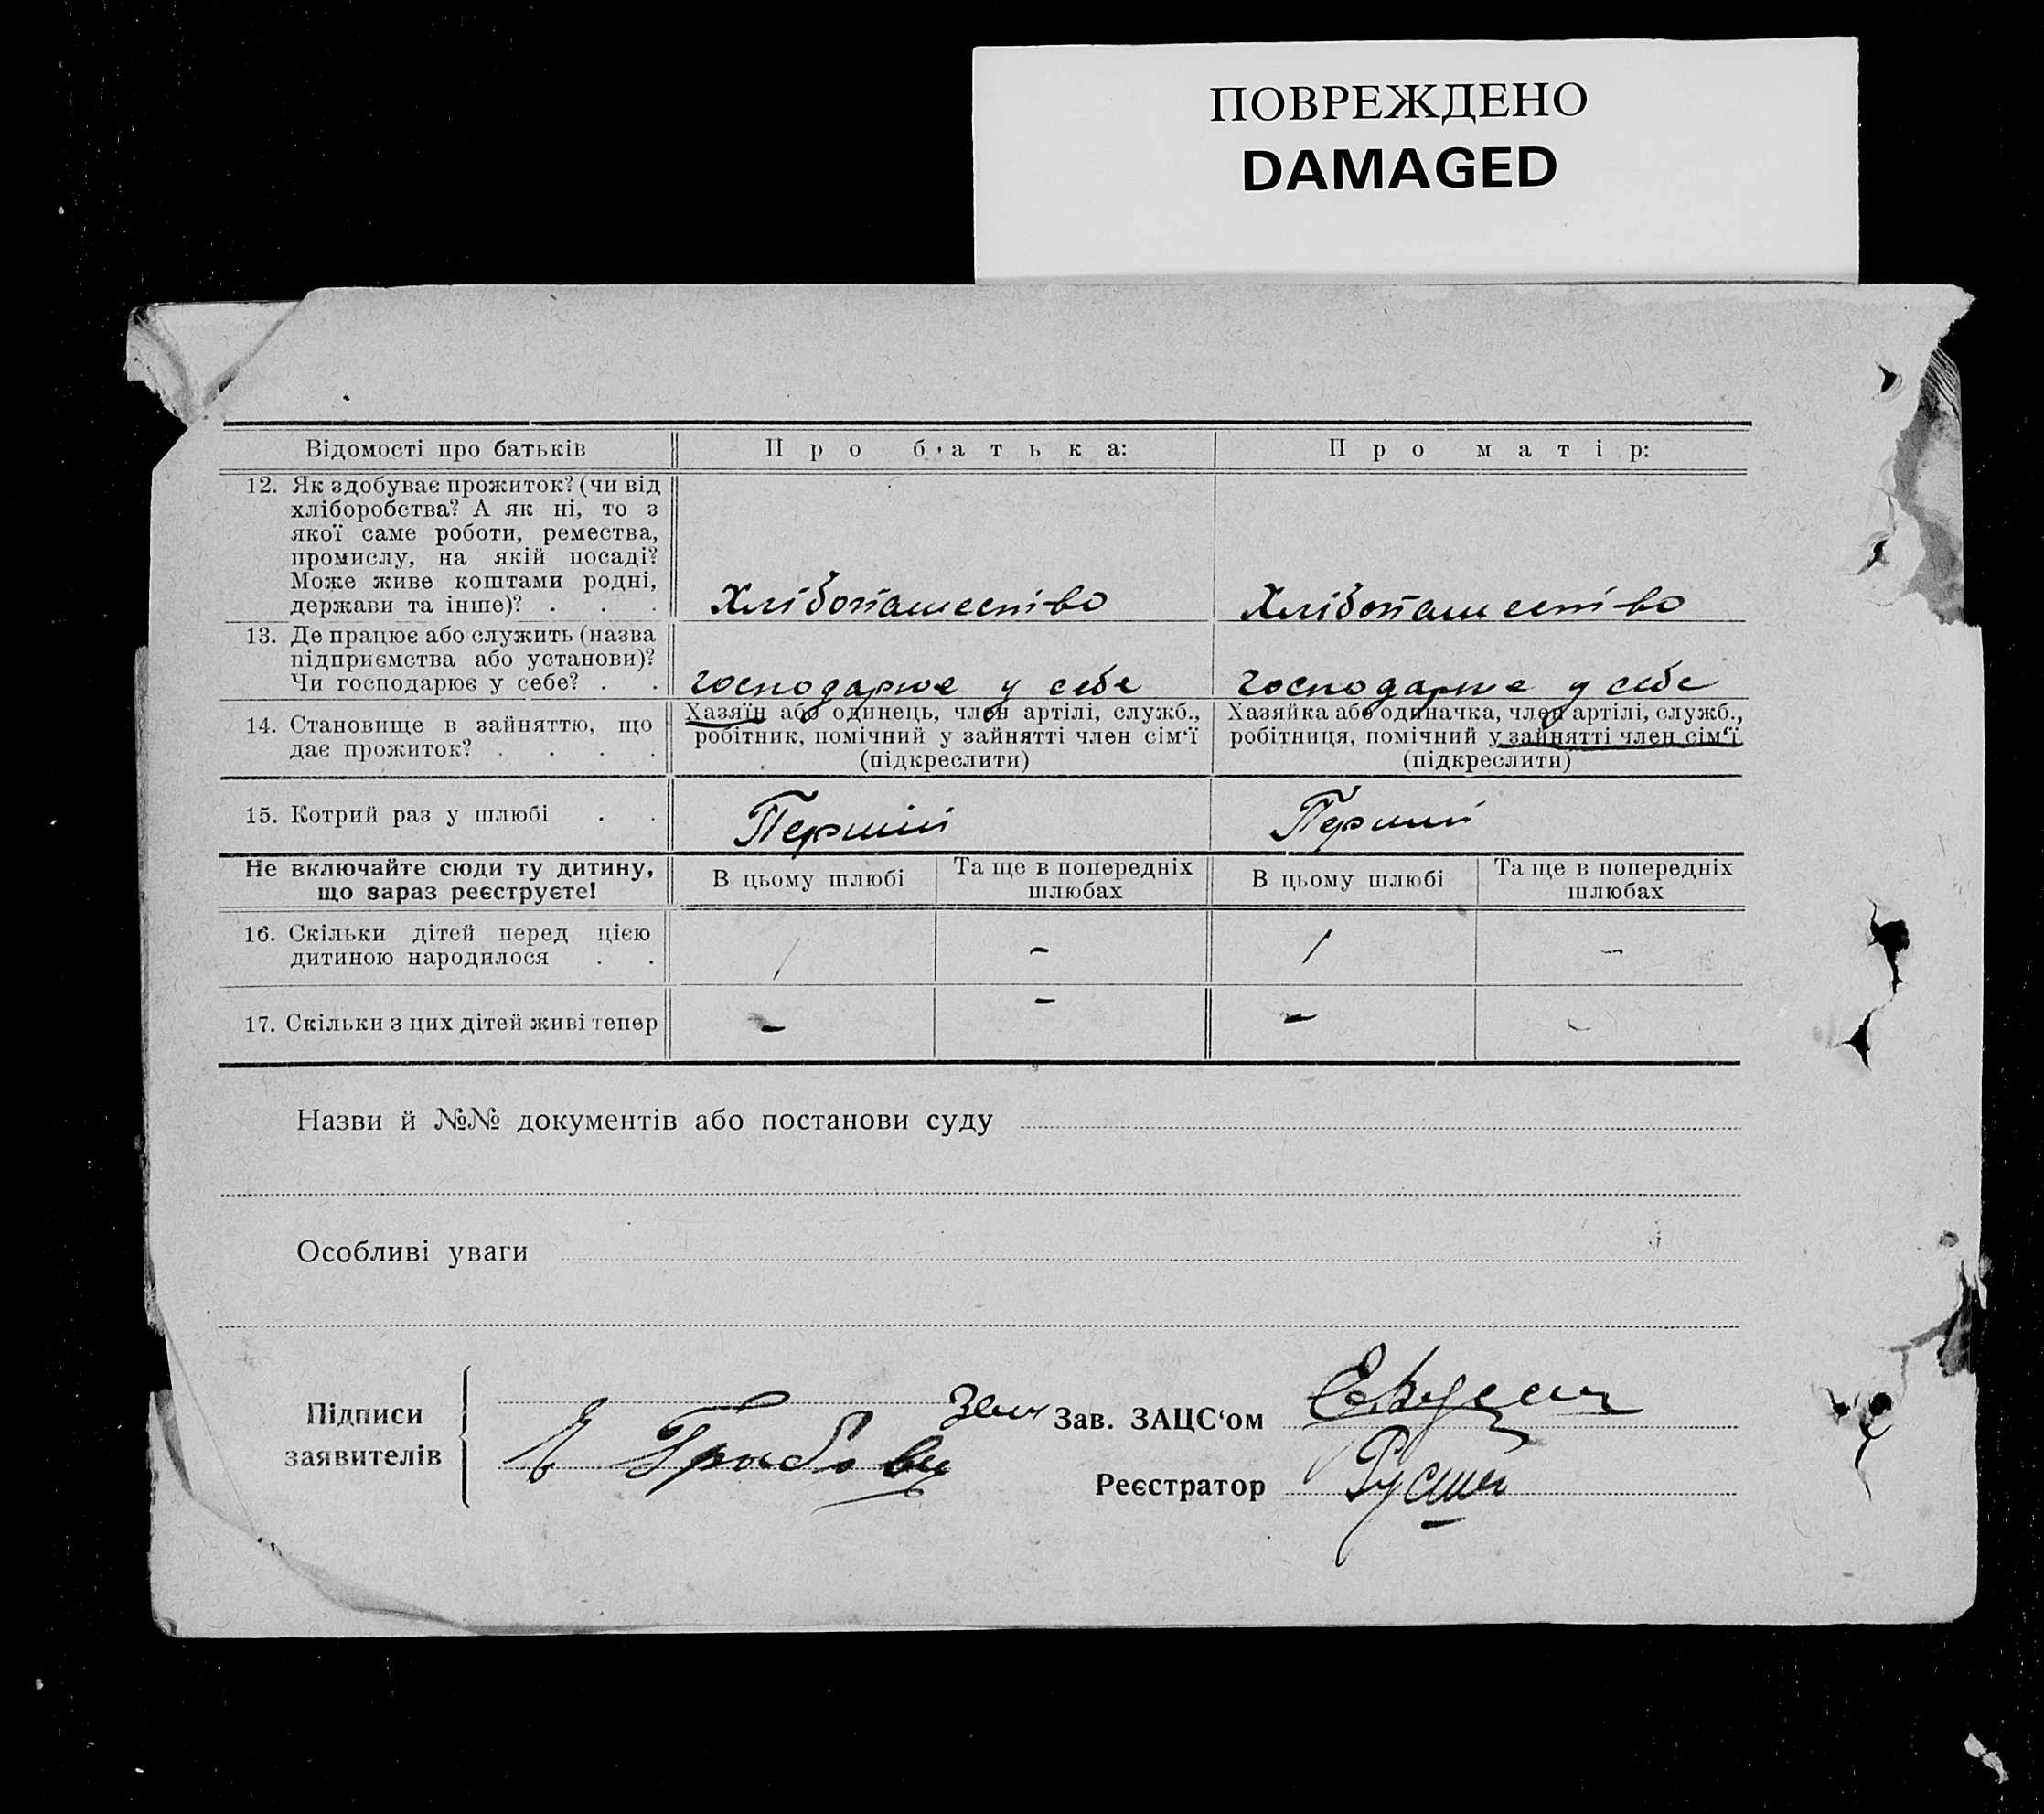 ПОВРЕЖДЕНО
DAMAGED
Відомості про батьків
Про батька:
Про матір:
12. Як здобуває прожиток? (чи від
хліборобства? А як ні, то з
якої саме роботи, ремества,
промислу, на якій посаді?
Може живе коштами родні,
держави та інше)? . . .
Хлібопашество
Хлібопашество
13. Де працює або служить (назва
підприємства або установи)?
Чи господарює у себе? . .
господарює у себе
господарює у себе
14. Становище в зайняттю, що
дає прожиток? . . . .
Хазяїн або одинець, член артілі, служб.,
робітник, помічний у зайнятті член сім'ї
(підкреслити)
Хазяйка або одиначка, член артілі, служб.,
робітниця, помічний у зайнятті член сім'ї
(підкреслити)
15. Котрий раз у шлюбі . .
Перший
Перший
Не включайте сюди ту дитину,
що зараз реєструєте!
В цьому шлюбі
Та ще в попередніх
шлюбах
В цьому шлюбі
Та ще в попередніх
шлюбах
16. Скільки дітей перед цією
дитиною народилося . .
/ - / -
17. Скільки з цих дітей живі тепер
- - - -
Назви й №№ документів або постанови суду
Особливі уваги
Підписи
заявителів
Зав. ЗАЦС'ом
Реєстратор